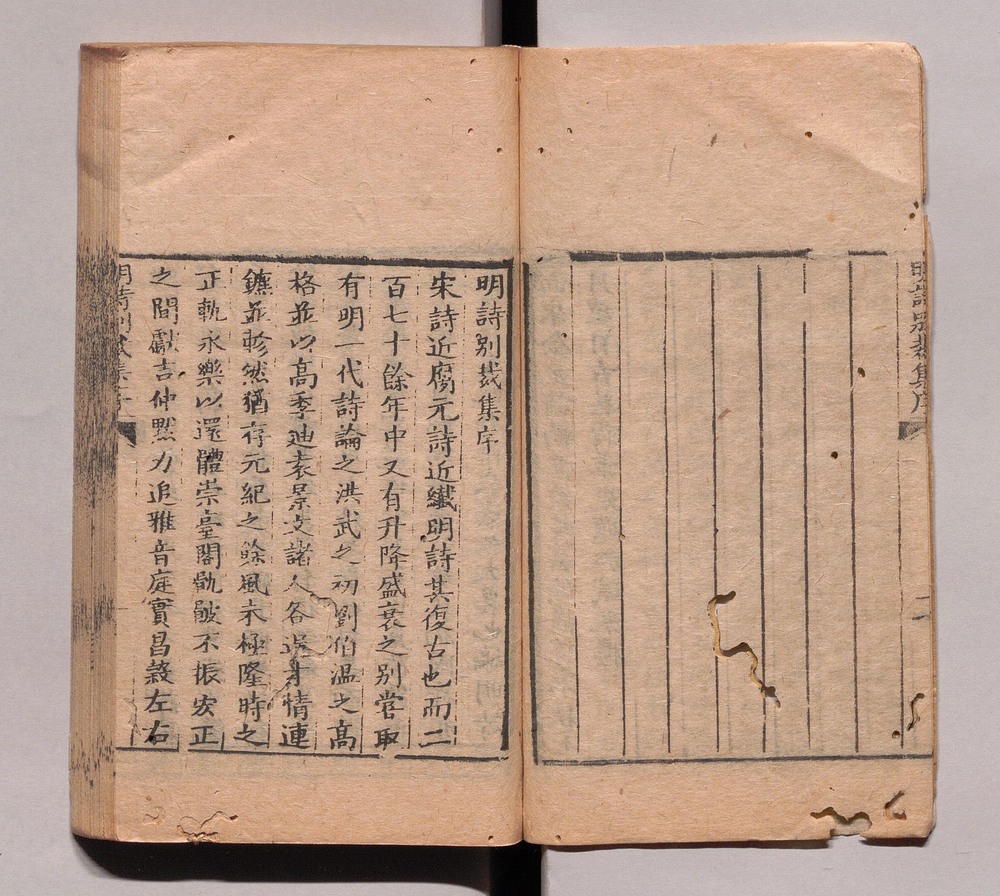 明詩別裁集序
二
明詩別裁集序
宋詩近腐元詩近纎明詩其復古也而二
百七十餘年中又有升降盛衰之別嘗取
有明一代詩論之洪武之初劉伯温之高
格並以高季迪袁景文諸人各逞才情連
鑣並軫然猶存元紀之餘風未極隆時之
正軌永樂以還體崇臺閣骫骳不振宏正
之間獻吉仲黙力追雅音庭實昌榖左右
明詩別裁集序